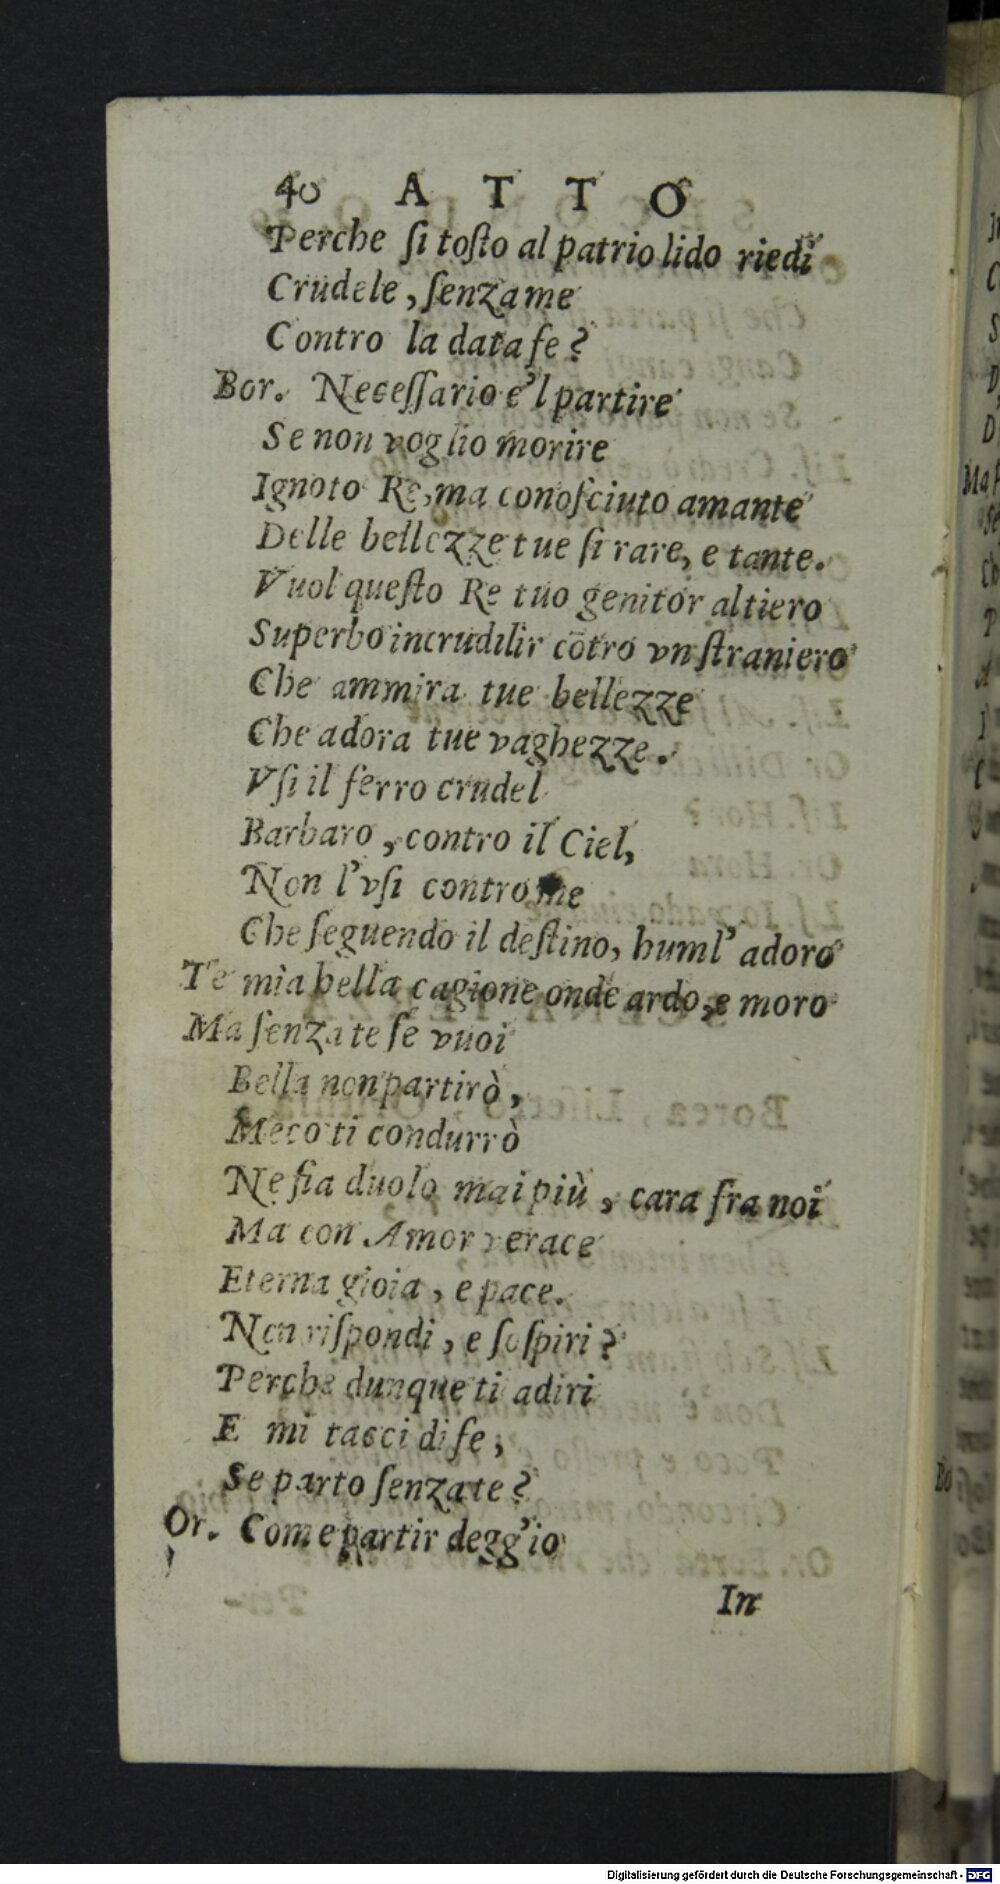 40 ATTO
Perche ſi toſto al patrio lido riedi
Crudele, ſenza me
Contro la data fe?
Bor. Neceſſario e'l partire
Se non voglio morire
Ignoto Re, ma conoſciuto amante
Delle bellezze tue ſi rare, e tante.
Vuol queſto Re tuo genitor altiero
Superbo incrudilir cōtro vn ſtraniero
Che ammira tue bellezze
Che adora tue vaghezze.
Vſi il ferro crudel
Barbaro, contro il Ciel,
Non l'vſi contro me
Che ſeguendo il deſtino, huml' adoro
Te mia bella cagione onde ardo, e moro
Ma ſenza te ſe vuoi
Bella non partirò,
Meco ti condurrò
Ne fia duolo mai più, cara fra noi
Ma con Amor verace
Eterna gioia, e pace.
Non riſpondi, e ſoſpiri?
Perche dunque ti adiri
E mi tacci di fe,
Se parto ſenza te?
Or. Come partir degg'io
In
Digitalisierung gefördert durch die Deutsche Forschungsgemeinschaft - DFG